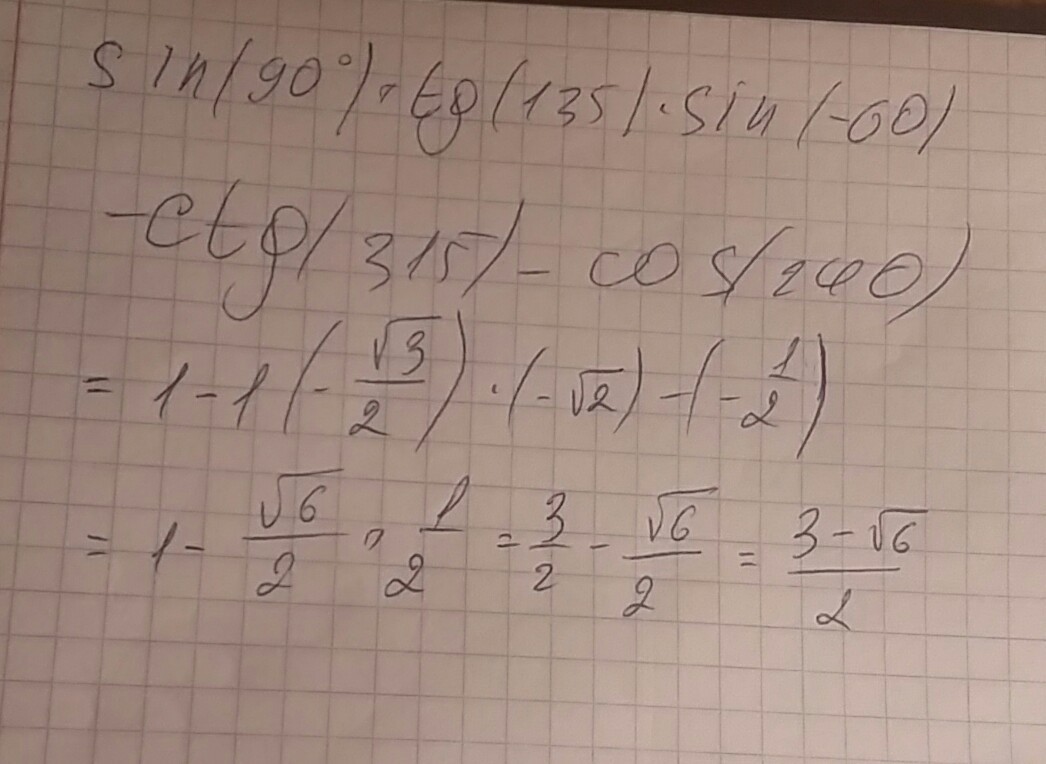 sin(90°)+tg(135)·sin(-60)
-ctg(315)-cos(240)
= 1-1(-√3/2)·(-√2)-(-1/2)
= 1-√6/2+1/2=3/2-√6/2=(3-√6)/2